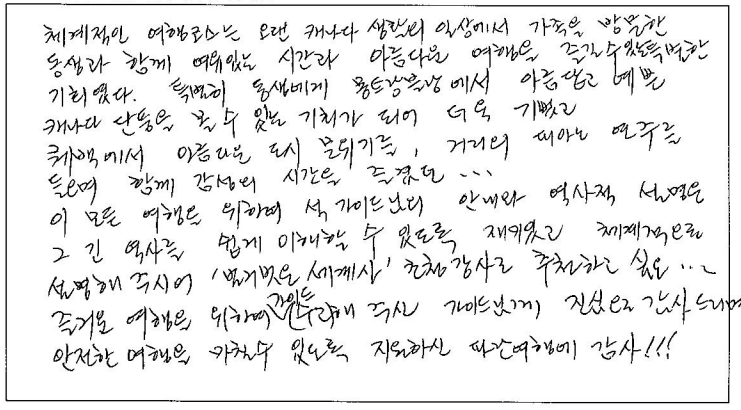 체계적인 여행코스는 오랜 캐나다 생활의 일상에서 가족을 방문한
동생과 함께 여유있는 시간과 아름다운 여행을 즐길수있는특별한
기회였다. 특별히 동생에게 몽트랑블랑에서 아름답고 예쁜
캐나다 단풍을 볼 수 있는 기회가 되어 더욱 기뻤고
퀘백에서 아름다운 도시 분위기를, 거리의 피아노 연주를
들으며 함께 감성의 시간을 즐겼던 ...
이 모든 여행을 위하여 석 가이드님의 안내와 역사적 설명은
그 긴 역사를 쉽게 이해할 수 있도록 재미있고 체계적으로
설명해 주시어 '벌거벗은 세계사' 초청 강사로 추천하고 싶은 ...
즐거운 여행을 위하여 수고해 주신 가이드님께 진심으로 감사드리며
안전한 여행을 마칠수 있도록 지원하신 파란여행에 감사!!!